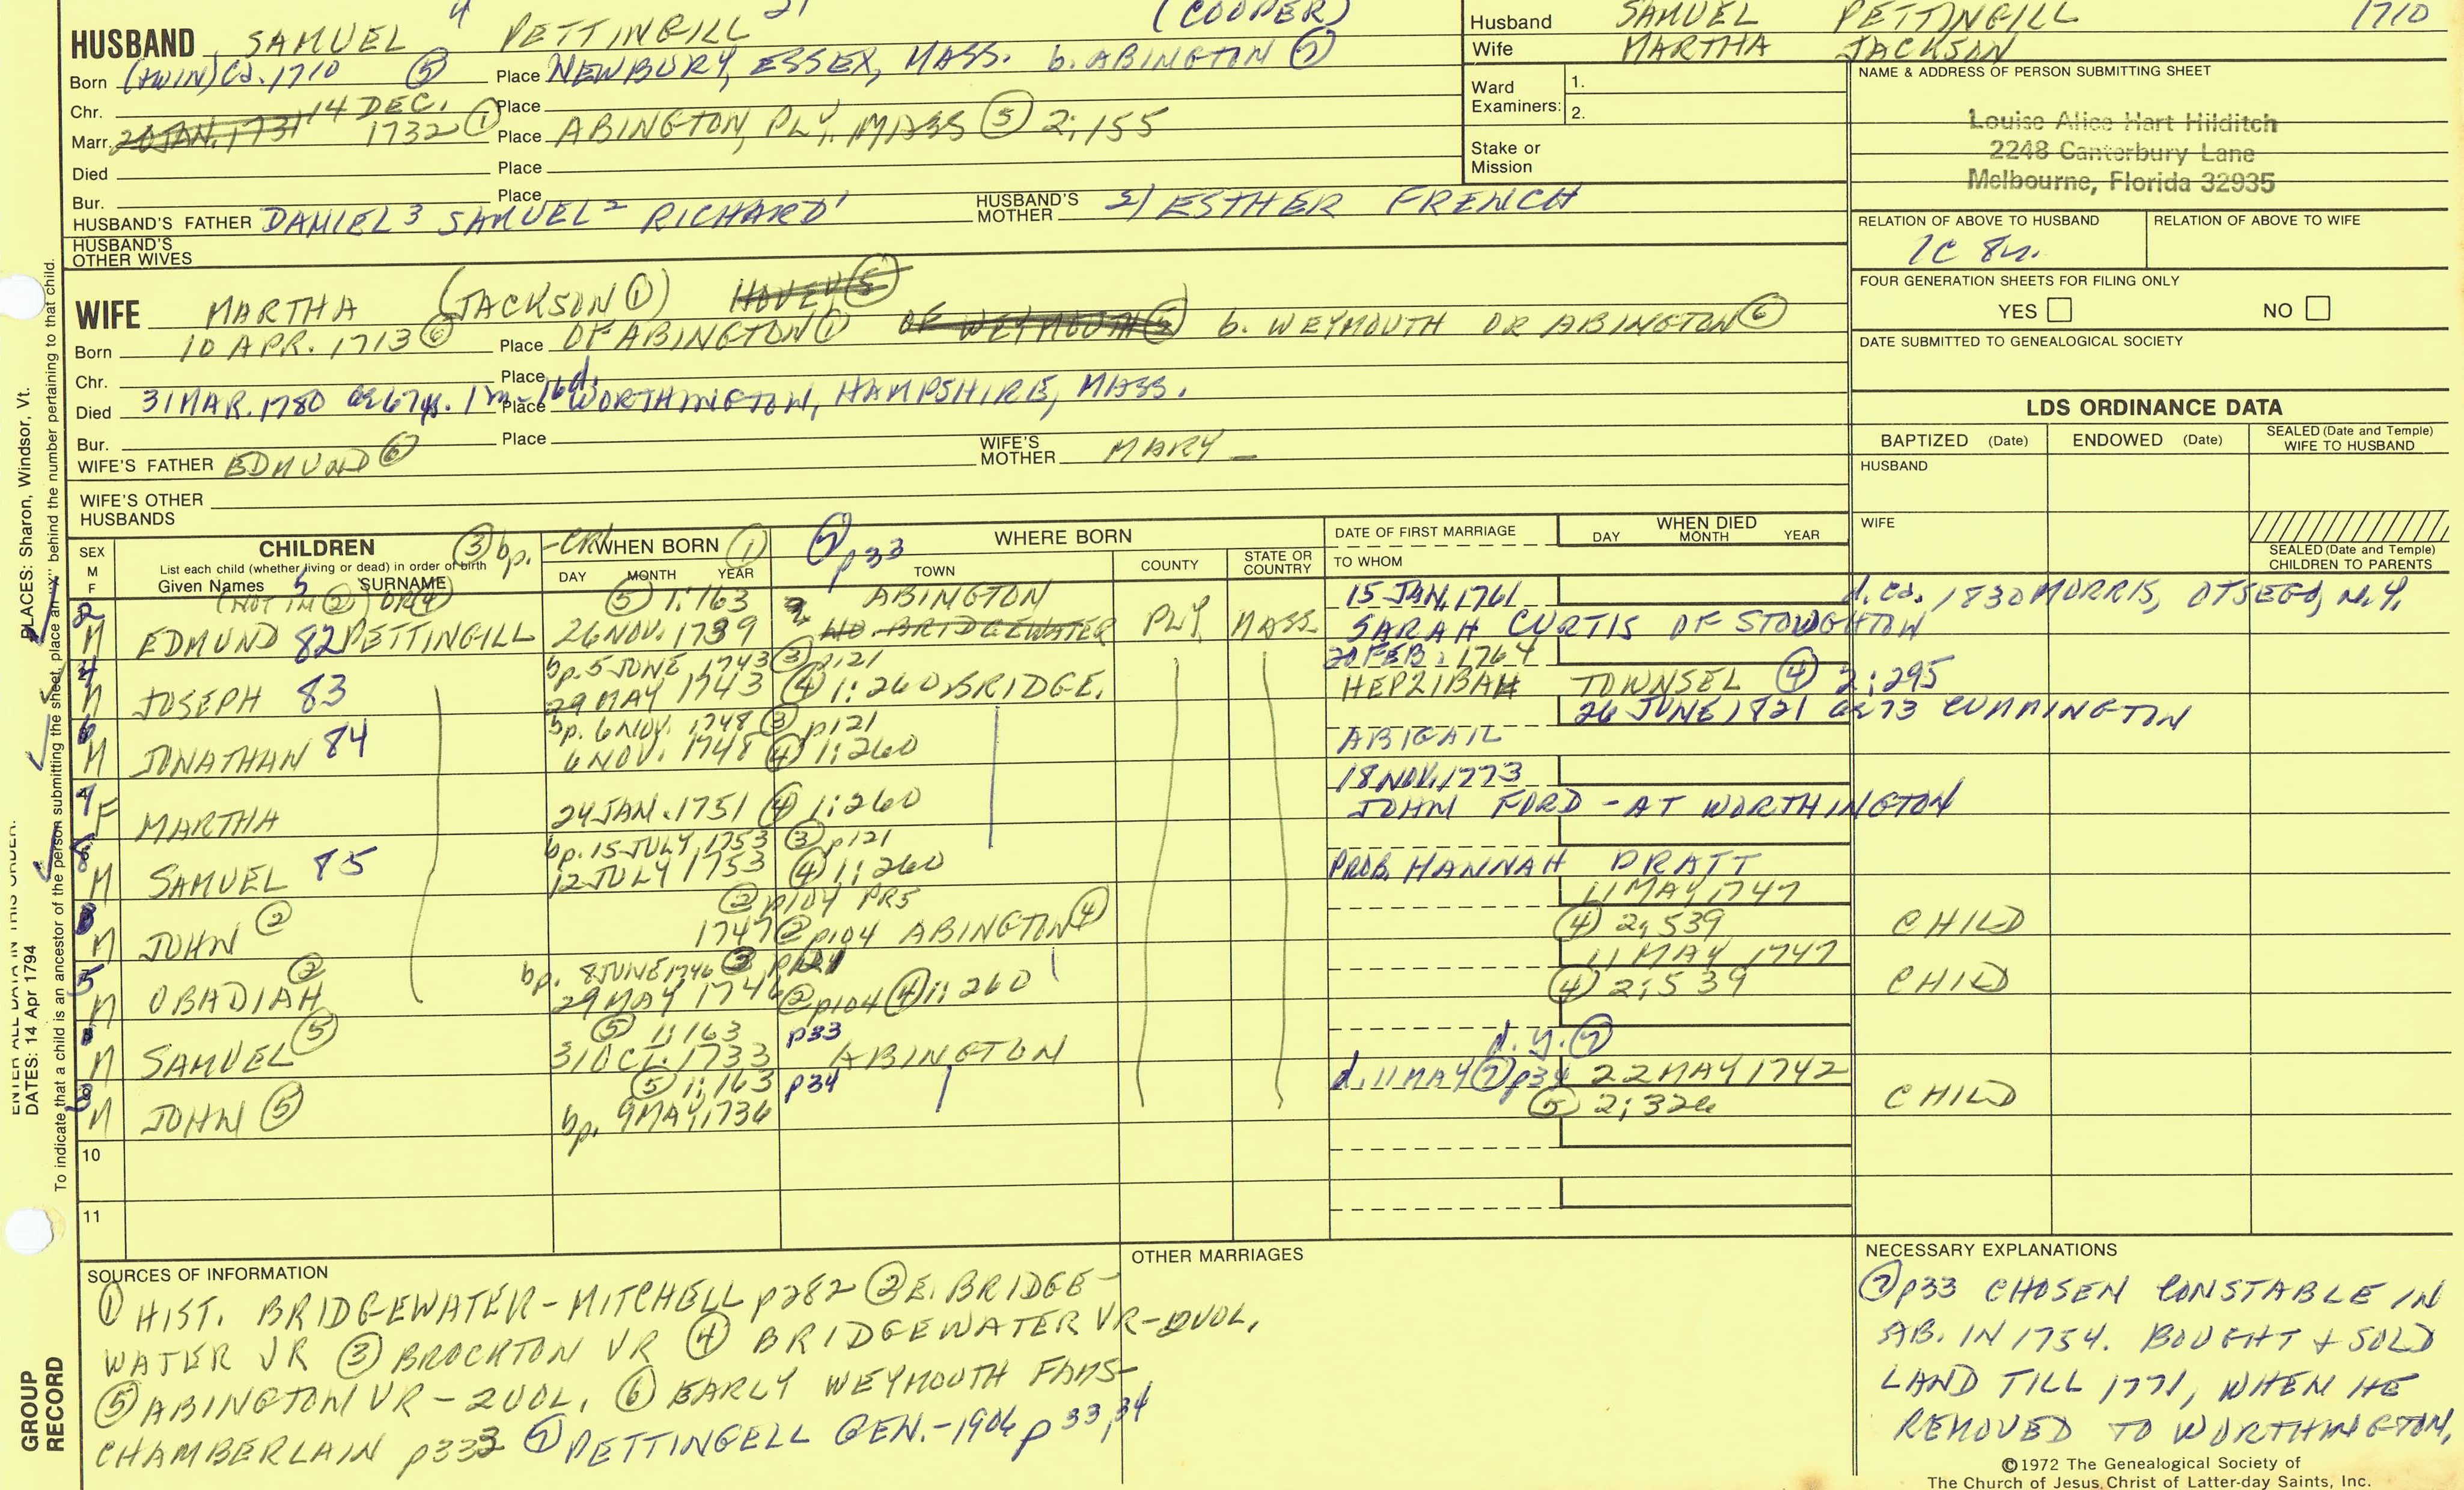 HUSBAND SAMUEL 4 PETTINGILL 21 (COOPER)
Born (TWIN) Ca. 1710 ⑤ Place NEWBURY, ESSEX, MASS. b. ABINGTON ⑦
Chr. Place
Marr. 20 JAN. 1731 14 DEC. 1732 ① Place ABINGTON, PLY. MASS ⑤ 2:155
Died Place
Bur. Place
HUSBAND'S FATHER DANIEL 3 SAMUEL 2 RICHARD 1 HUSBAND'S MOTHER 2/ ESTHER FRENCH
HUSBAND'S OTHER WIVES
WIFE MARTHA (JACKSON ①) HOVEY ⑤
Born 10 APR. 1713 ⑥ Place OF ABINGTON ① OF WEYMOUTH ⑤ b. WEYMOUTH OR ABINGTON ⑥
Chr. Place
Died 31 MAR. 1780 ae 67 ys. 1 m - 16 d. Place WORTHINGTON, HAMPSHIRE, MASS.
Bur. Place
WIFE'S FATHER EDMUND ⑥ WIFE'S MOTHER MARY –
WIFE'S OTHER HUSBANDS
Husband SAMUEL PETTINGILL 1710
Wife MARTHA JACKSON
Ward Examiners: 1.
2.
Stake or Mission
NAME & ADDRESS OF PERSON SUBMITTING SHEET
Louise Alice Hart Hilditch
2248 Canterbury Lane
Melbourne, Florida 32935
RELATION OF ABOVE TO HUSBAND RELATION OF ABOVE TO WIFE
1C 8r.
FOUR GENERATION SHEETS FOR FILING ONLY
YES NO
DATE SUBMITTED TO GENEALOGICAL SOCIETY
LDS ORDINANCE DATA
BAPTIZED (Date) ENDOWED (Date) SEALED (Date and Temple) WIFE TO HUSBAND
HUSBAND
WIFE
SEALED (Date and Temple) CHILDREN TO PARENTS
SEX M F
CHILDREN ③ bp. -CRI WHEN BORN ① ⑦ p33 WHERE BORN DATE OF FIRST MARRIAGE WHEN DIED
List each child (whether living or dead) in order of birth
Given Names 5 SURNAME DAY MONTH YEAR TOWN COUNTY STATE OR COUNTRY TO WHOM DAY MONTH YEAR
(NOT IN ②) OR ④ ⑤ 1:163 ABINGTON 15 JAN, 1761 d. ca. 1830 MORRIS, OTSEGO, N.Y.
2 M EDMUND 82 PETTINGILL 26 NOV. 1739 NO. BRIDGEWATER PLY MASS. SARAH CURTIS OF STOUGHTON
bp. 5 JUNE 1743 ③ p121 20 FEB. 1764
4 M JOSEPH 83 29 MAY 1743 ④ 1:260 BRIDGE. HEPZIBAH TOWNSEL ④ 2:295
bp. 6 NOV. 1748 ③ p121 26 JUNE 1821 ae 73 CUMMINGTON
6 M JONATHAN 84 6 NOV. 1748 ④ 1:260 ABIGAIL
18 NOV. 1773
7 F MARTHA 24 JAN. 1751 ④ 1:260 JOHN FORD - AT WORTHINGTON
bp. 15 JULY 1753 ③ p121
8 M SAMUEL 85 12 JULY 1753 ④ 1:260 PROB. HANNAH PRATT
② p104 PR5 11 MAY 1747
M JOHN ② 1747 ② p104 ABINGTON ④ ④ 2:539 CHILD
bp. 8 JUNE 1746 ③ p121 11 MAY 1747
5 M OBADIAH ② 29 MAY 1746 ② p104 ④ 1:260 ④ 2:539 CHILD
⑤ 1:163 p33 d.y. ⑦
M SAMUEL ⑤ 31 OCT. 1733 ABINGTON
⑤ 1:163 p34 d. 11 MAY ⑦ p34 22 MAY 1742
M JOHN ⑤ bp. 9 MAY, 1736 ⑤ 2:326 CHILD
10
11
SOURCES OF INFORMATION
① HIST. BRIDGEWATER - MITCHELL p282 ② E. BRIDGE-
WATER VR ③ BROCKTON VR ④ BRIDGEWATER VR - 2VOL.
⑤ ABINGTON VR - 2VOL. ⑥ EARLY WEYMOUTH FAMS-
CHAMBERLAIN p333 ⑦ PETTINGELL GEN. - 1906 p 33, 34
OTHER MARRIAGES
NECESSARY EXPLANATIONS
⑦ p33 CHOSEN CONSTABLE IN
AB. IN 1754. BOUGHT + SOLD
LAND TILL 1771, WHEN HE
REMOVED TO WORTHINGTON,
©1972 The Genealogical Society of
The Church of Jesus Christ of Latter-day Saints, Inc.
ENTER ALL DATA IN THIS ORDER:
DATES: 14 Apr 1794 PLACES: Sharon, Windsor, Vt.
To indicate that a child is an ancestor of the person submitting the sheet, place an "X" behind the number pertaining to that child.
GROUP RECORD